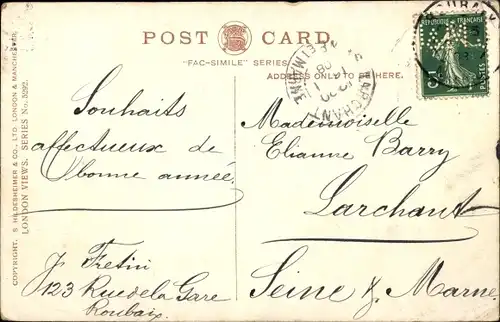 POST CARD.
"FAC-SIMILE" SERIES
ADDRESS ONLY TO BE HERE.
COPYRIGHT. S HILDESHEIMER & CO., LTD. LONDON & MANCHESTER.
LONDON VIEWS. SERIES No. 5292.
Souhaits
affectueux de
bonne année.
J. Fretin
123 Rue de la Gare
Roubaix.
Mademoiselle
Elianne Barry
Larchant
Seine & Marne
REPUBLIQUE FRANÇAISE
5
LARCHANT